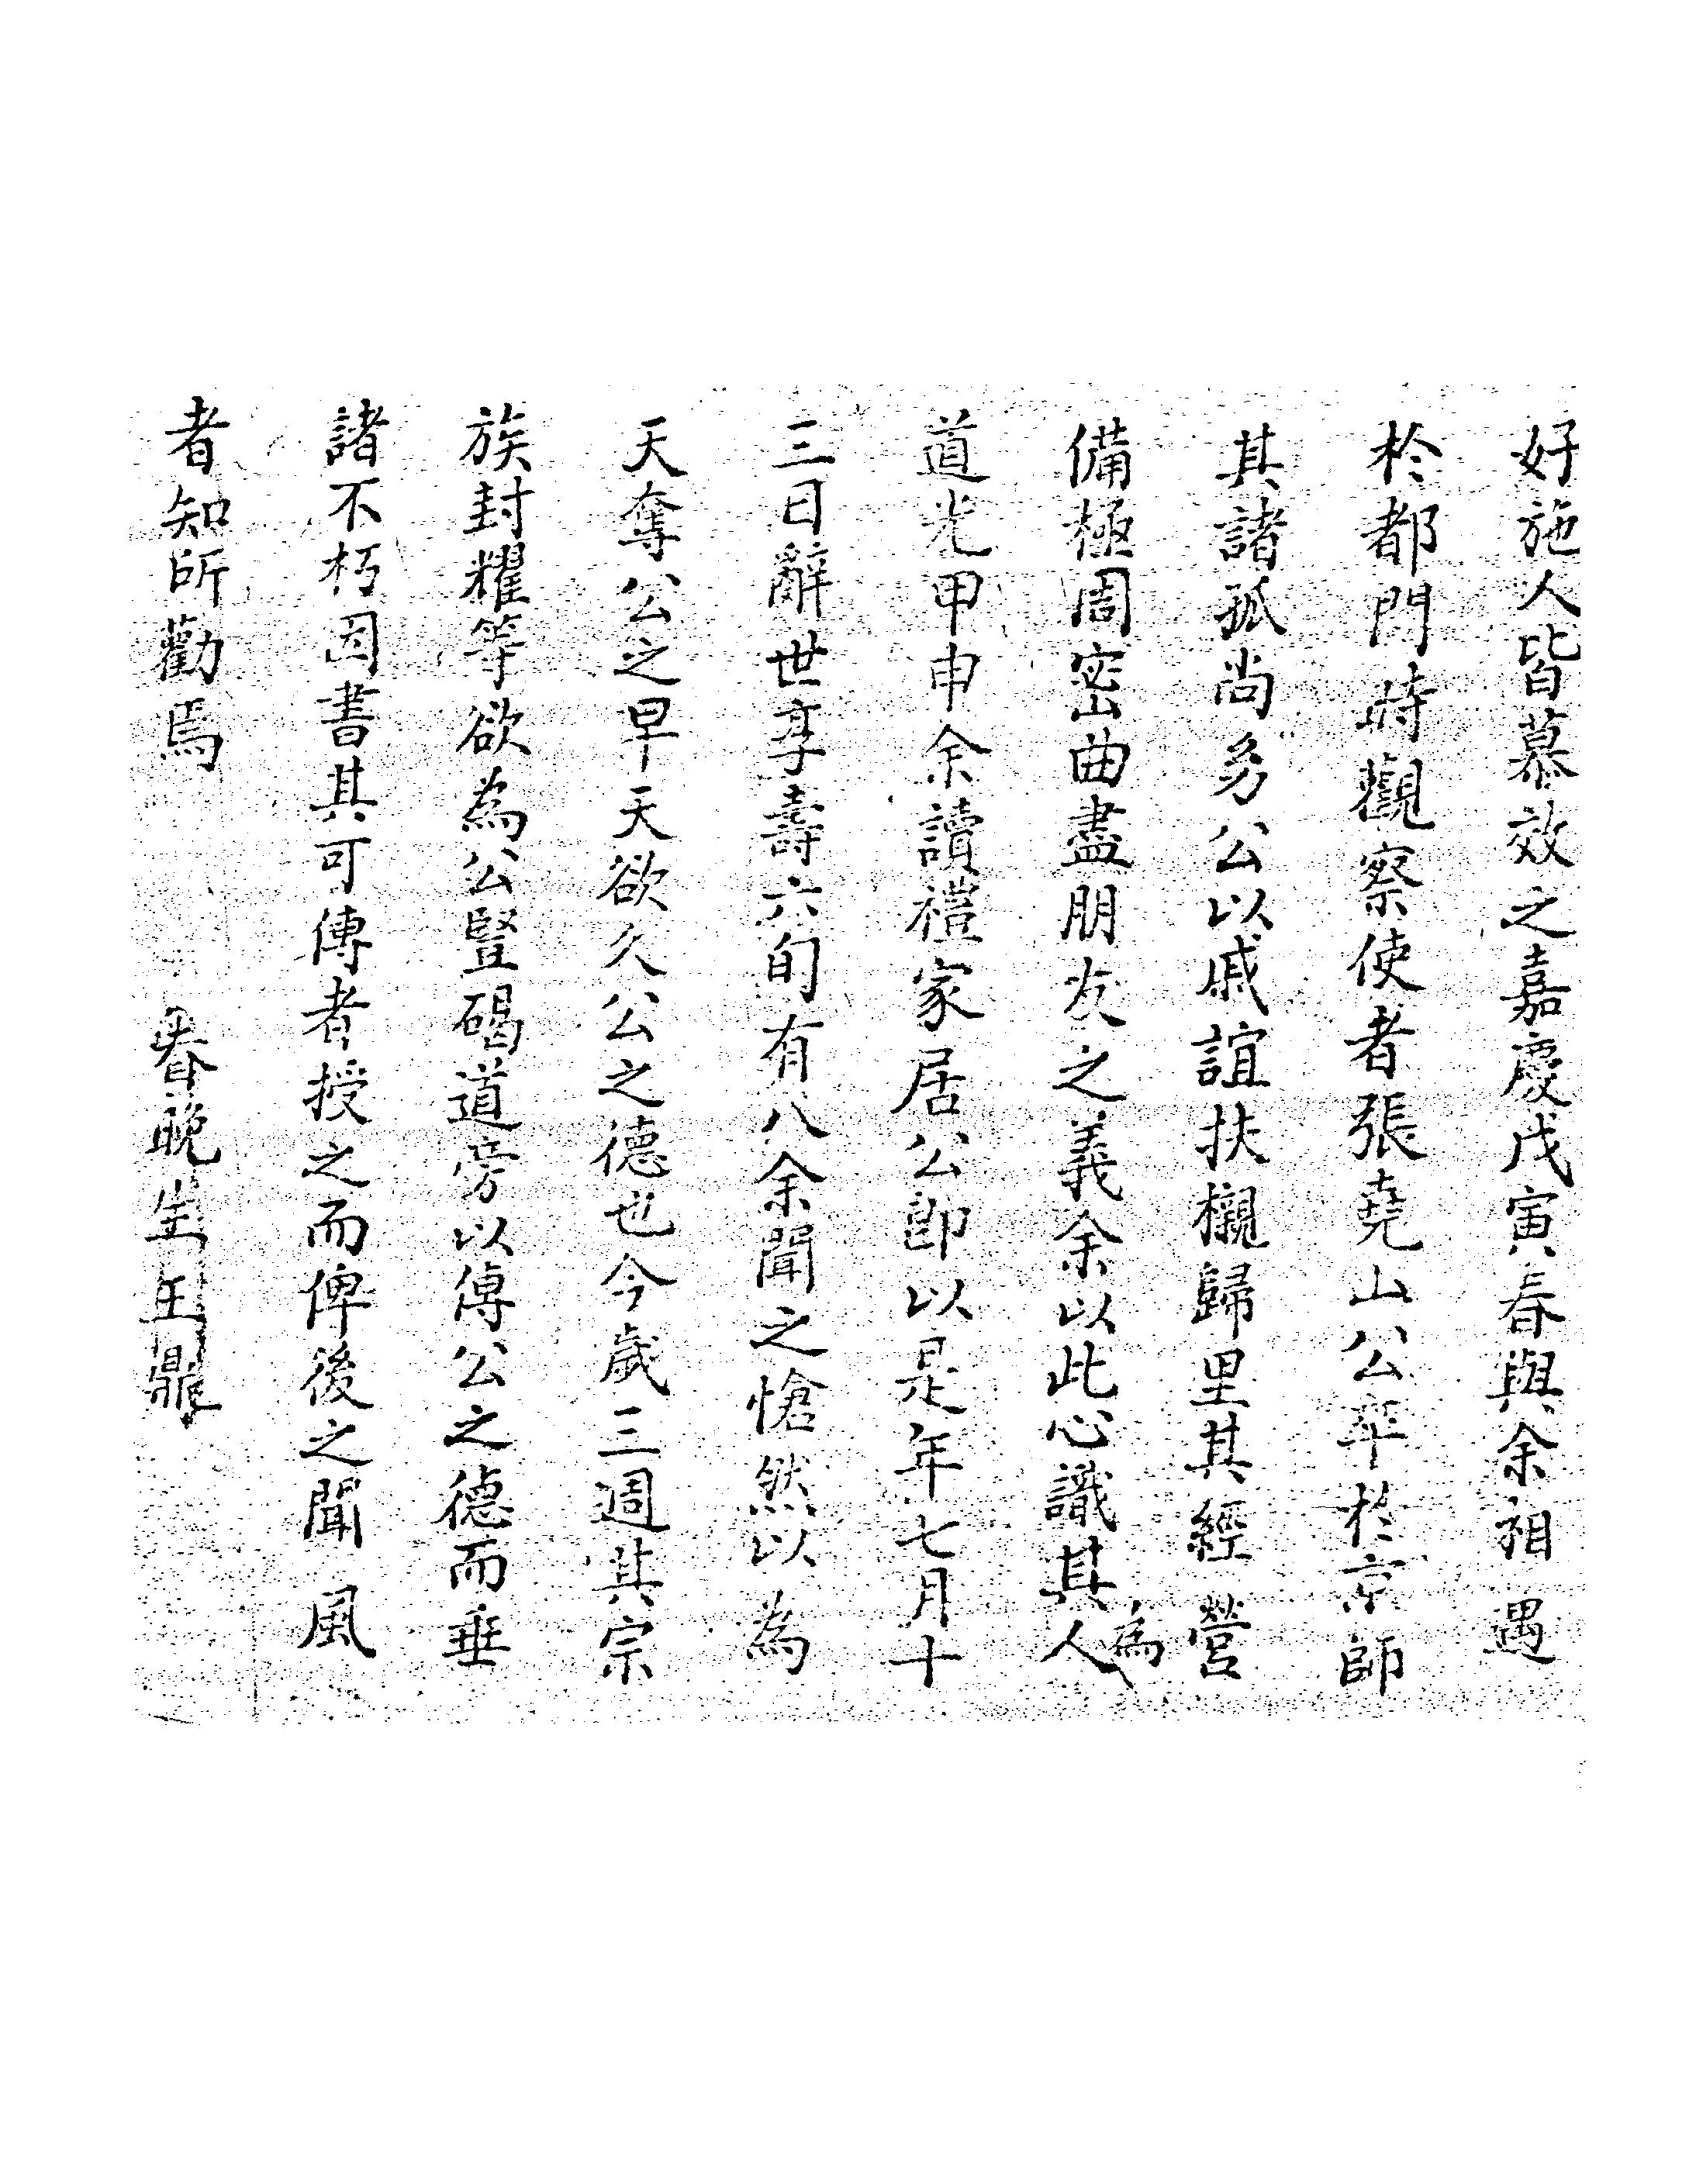 好施人皆慕效之嘉慶戊寅春與余相遇
於都門時觀察使者張堯山公卒於京師
其諸孤尚多公以戚誼扶櫬歸里其經營
備極周密曲盡朋友之義余以此心識其為人
道光甲申余讀禮家居公即以是年七月十
三日辭世享壽六旬有八余聞之愴然以為
天奪公之早天欲久公之德也今歲三週其宗
族封耀等欲為公豎碣道旁以傳公之德而垂
諸不朽因書其可傳者授之而俾後之聞風
者知所勸焉 眷晚生王鼎